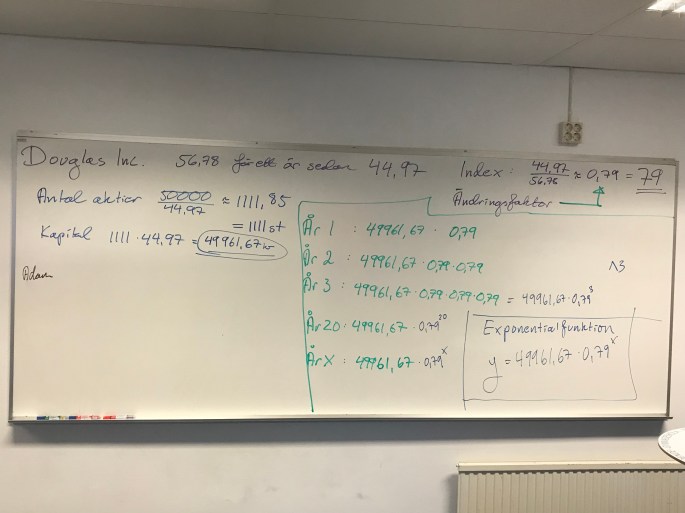 Douglas Inc. 56,78 för ett år sedan 44,97
Index: 44,97/56,78 ≈ 0,79 = 79
Ändringsfaktor
Antal aktier 50000/44,97 ≈ 1111,85
= 1111 st
Kapital 1111 · 44,97 = 49961,67 kr
Adam
År 1: 49961,67 · 0,79
År 2: 49961,67 · 0,79 · 0,79
År 3: 49961,67 · 0,79 · 0,79 · 0,79 = 49961,67 · 0,79^3
^3
År 20: 49961,67 · 0,79^20
År X: 49961,67 · 0,79^x
Exponentialfunktion
y = 49961,67 · 0,79^x